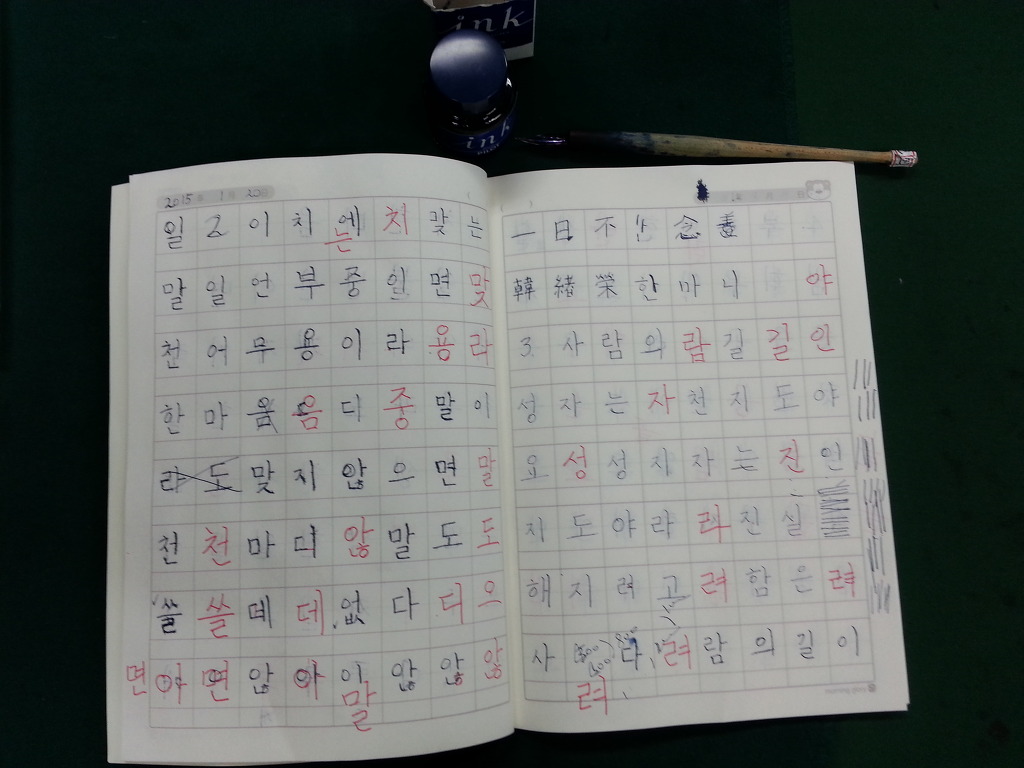 ink
ink
2015 1 20
일 고 이 치 에 치 맞 는
는
말 일 언 부 중 인 면 맞
천 어 무 용 이 라 용 라
한 마 음 음 디 중 말 이
라 도 맞 지 않 으 면 말
천 천 마 디 않 말 도 도
쓸 쓸 데 데 없 다 디 으
면 아 면 않 아 이 않 않 않
말
一 日 不 念 善
韓 緖 榮 한 마 니 야
3. 사 람 의 람 길 길 인
성 자 는 자 천 지 도 야
요 성 성 지 자 는 진 인
지 도 야 라 라 진 실
해 지 려 고 려 함 은 려
사 다 려 람 의 길 이
려